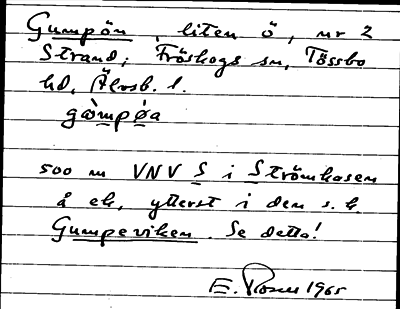 Gumpön, liten ö, nr 2
Strand, Fröskogs sn, Tössbo
hd, Älvsb. l.
gòmpø̀a
500 m VNV S i Strömhasen
å ek, ytterst i den s.k.
Gumperviken. Se detta!
E. Rosen 1965